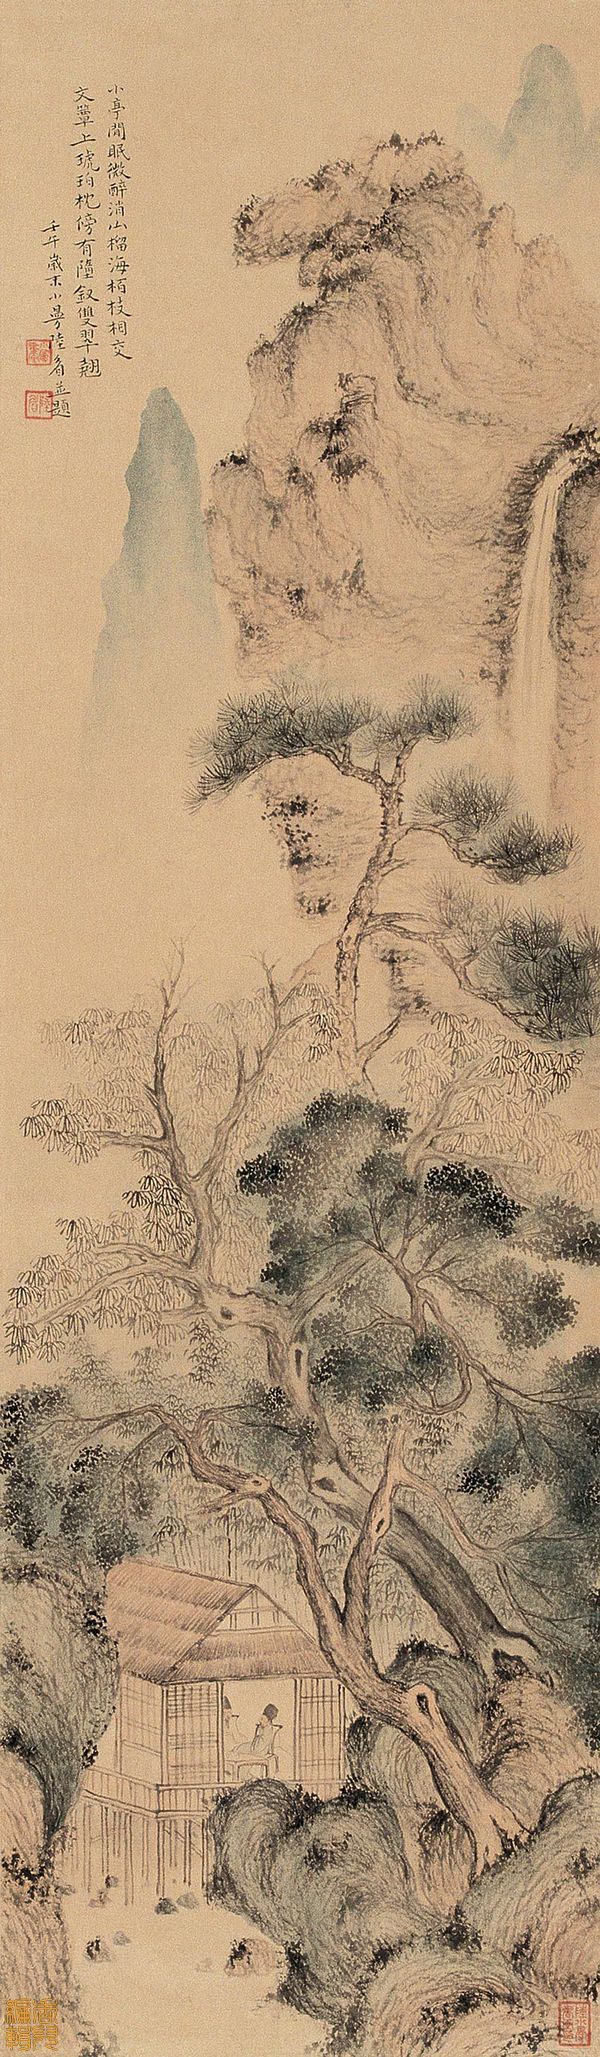 小亭閒眠微醉消山榴海栢枝相交
文簟上琥珀枕傍有墮釵雙翠翹
壬午歲末小曼陸眉並題